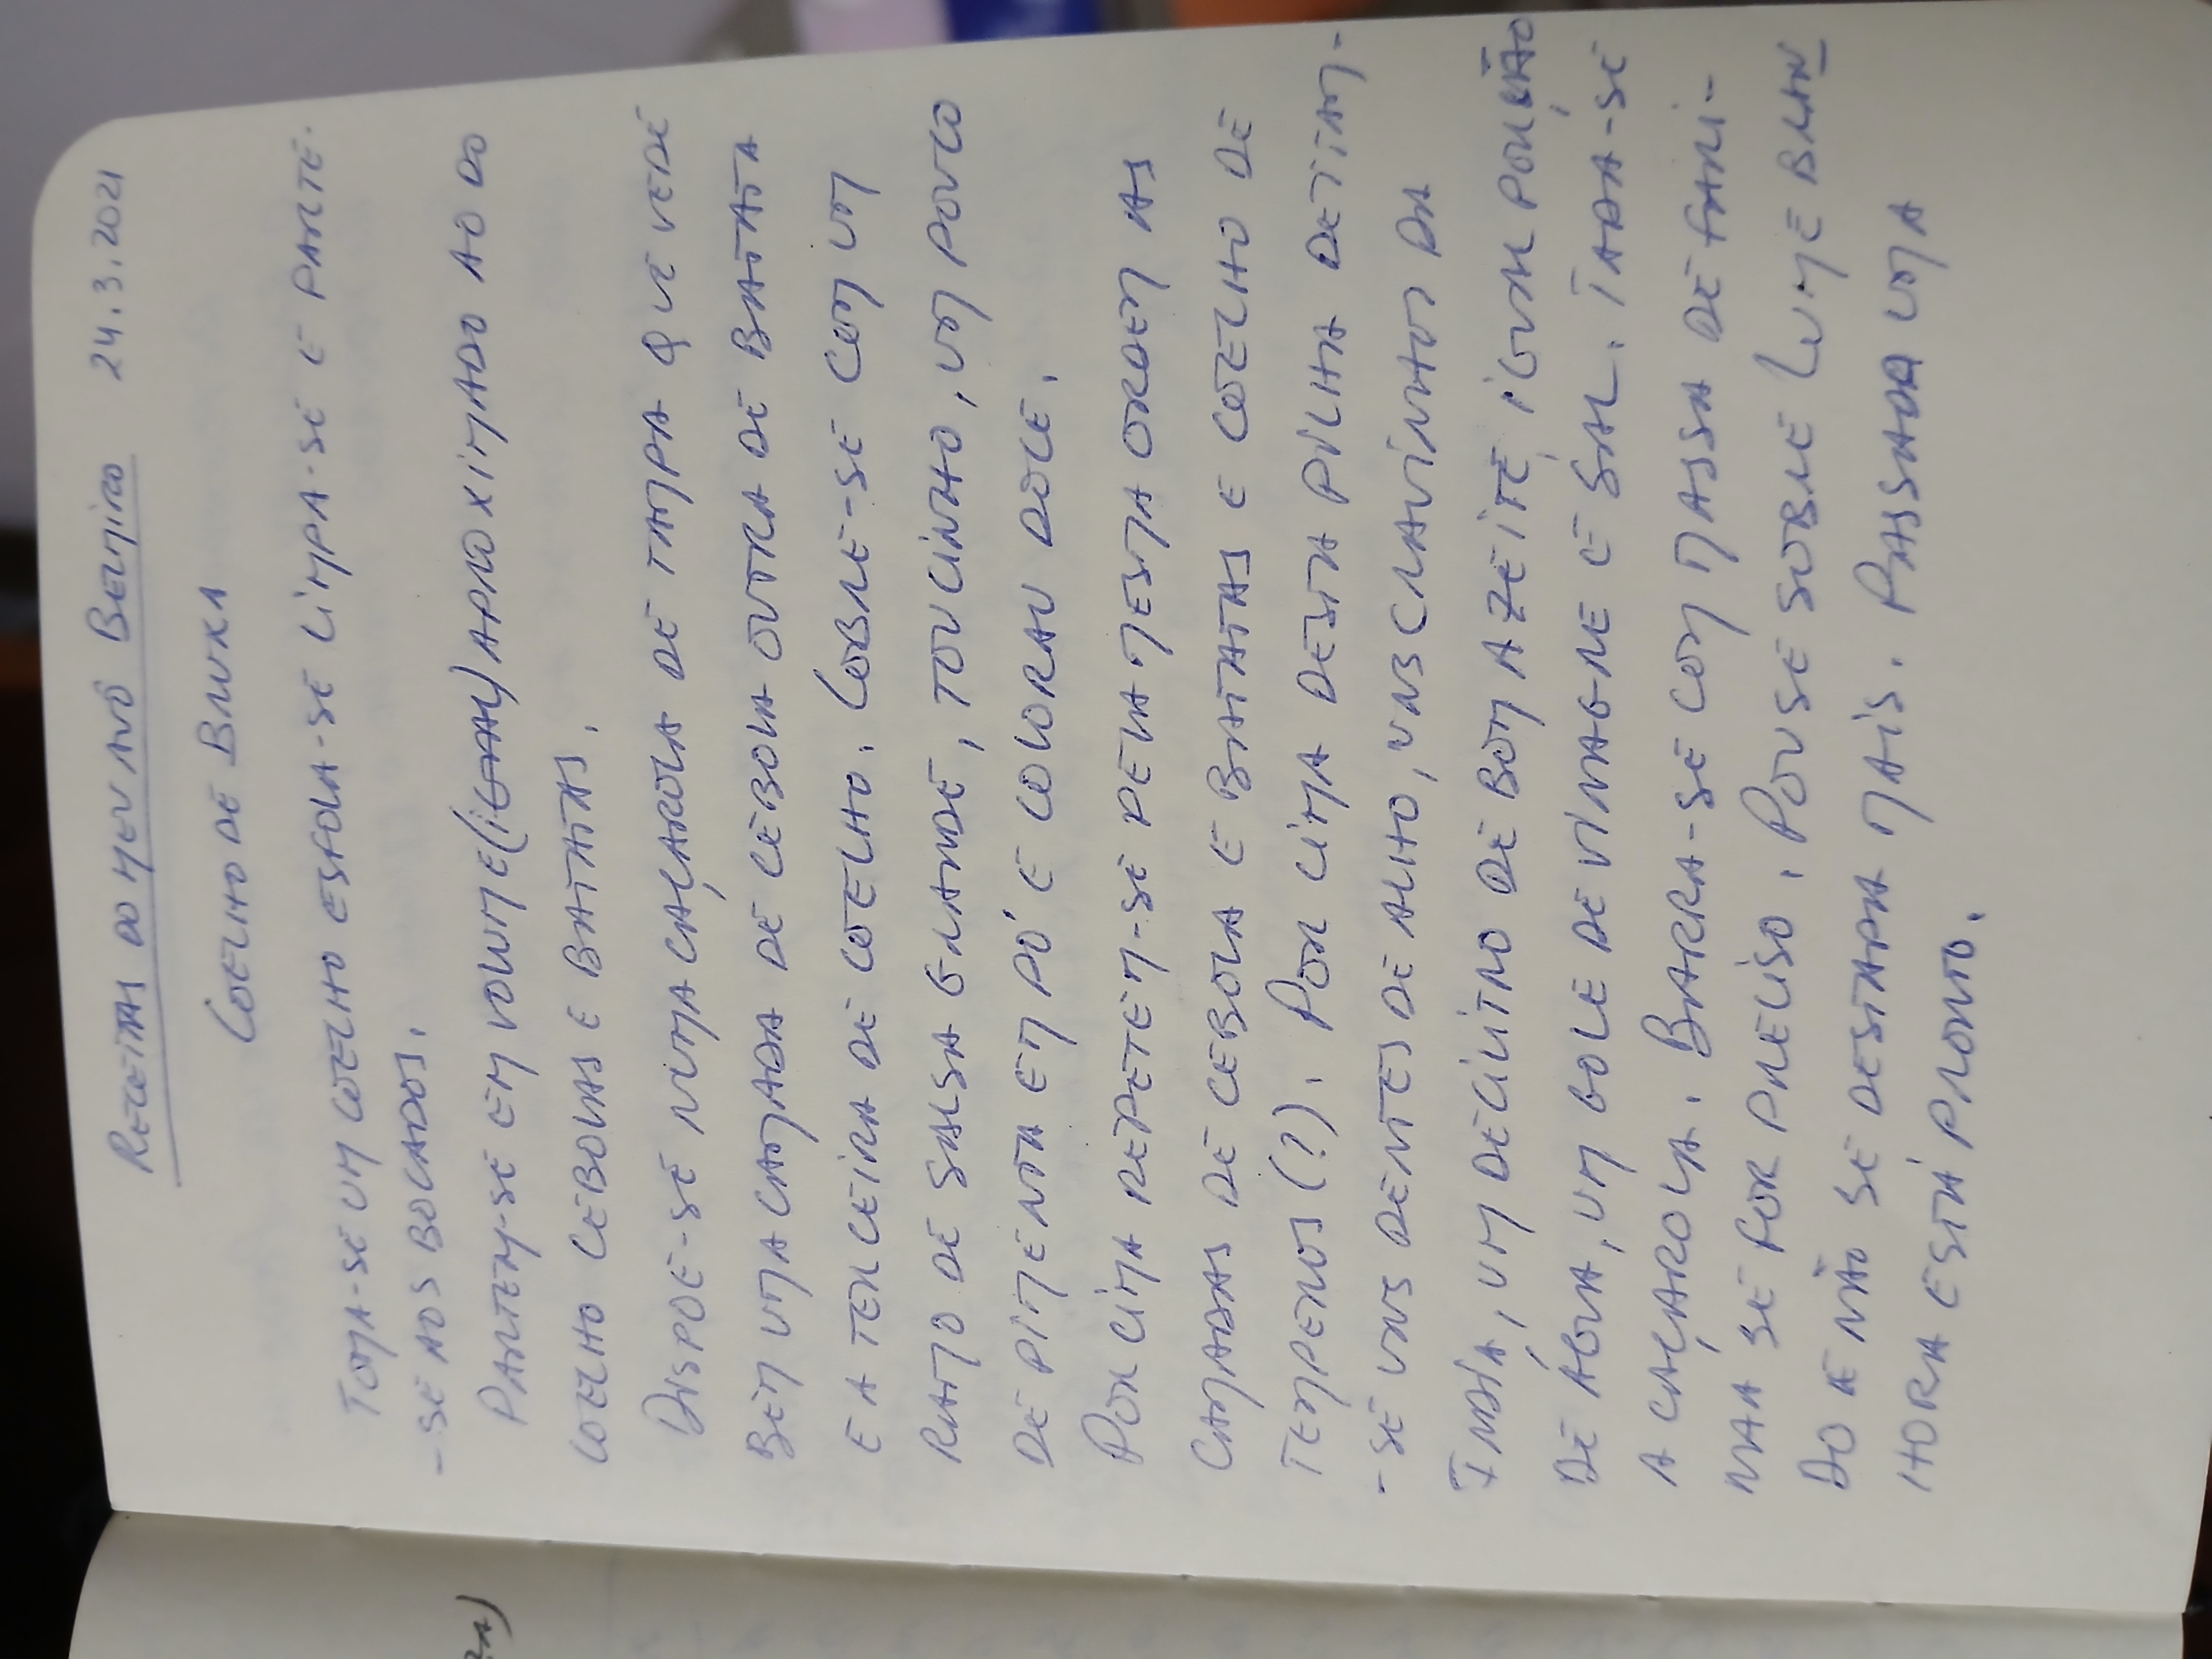 RECEITAS DO MEU AVÔ BELMIRO 24.3.2021
COELHO DE BRUXA
TOMA-SE UM COELHO ESFOLA-SE LIMPA-SE E PARTE-
-SE AOS BOCADOS.
PARTEM-SE EM VOLUME (IGUAL) APROXIMADO AO DO
COELHO CEBOLAS E BATATAS.
DISPÕE-SE NUMA CAÇAROLA DE TAMPA QUE VEDE
BEM UMA CAMADA DE CEBOLA OUTRA DE BATATA
E A TERCEIRA DE COELHO. COBRE-SE COM UM
RAMO DE SALSA GRANDE, TOUCINHO, UM POUCO
DE PIMENTA EM PÓ E COLORAU DOCE.
POR CIMA REPETEM-SE PELA MESMA ORDEM AS
CAMADAS DE CEBOLA E BATATAS E COELHO DE
TEMPEROS (?). POR CIMA DESTA PILHA DEITAM-
-SE UNS DENTES DE ALHO, UNS CRAVINHOS DA
ÍNDIA, UM DECILITRO DE BOM AZEITE, IGUAL PORÇÃO
DE ÁGUA, UM GOLE DE VINAGRE E SAL. TAPA-SE
A CAÇAROLA. BARRA-SE COM MASSA DE FARI-
NHA SE FOR PRECISO. POUSE SOBRE LUME BRAN
DO E NÃO SE DESTAPA MAIS. PASSADA UMA
HORA ESTÁ PRONTO.
RA)